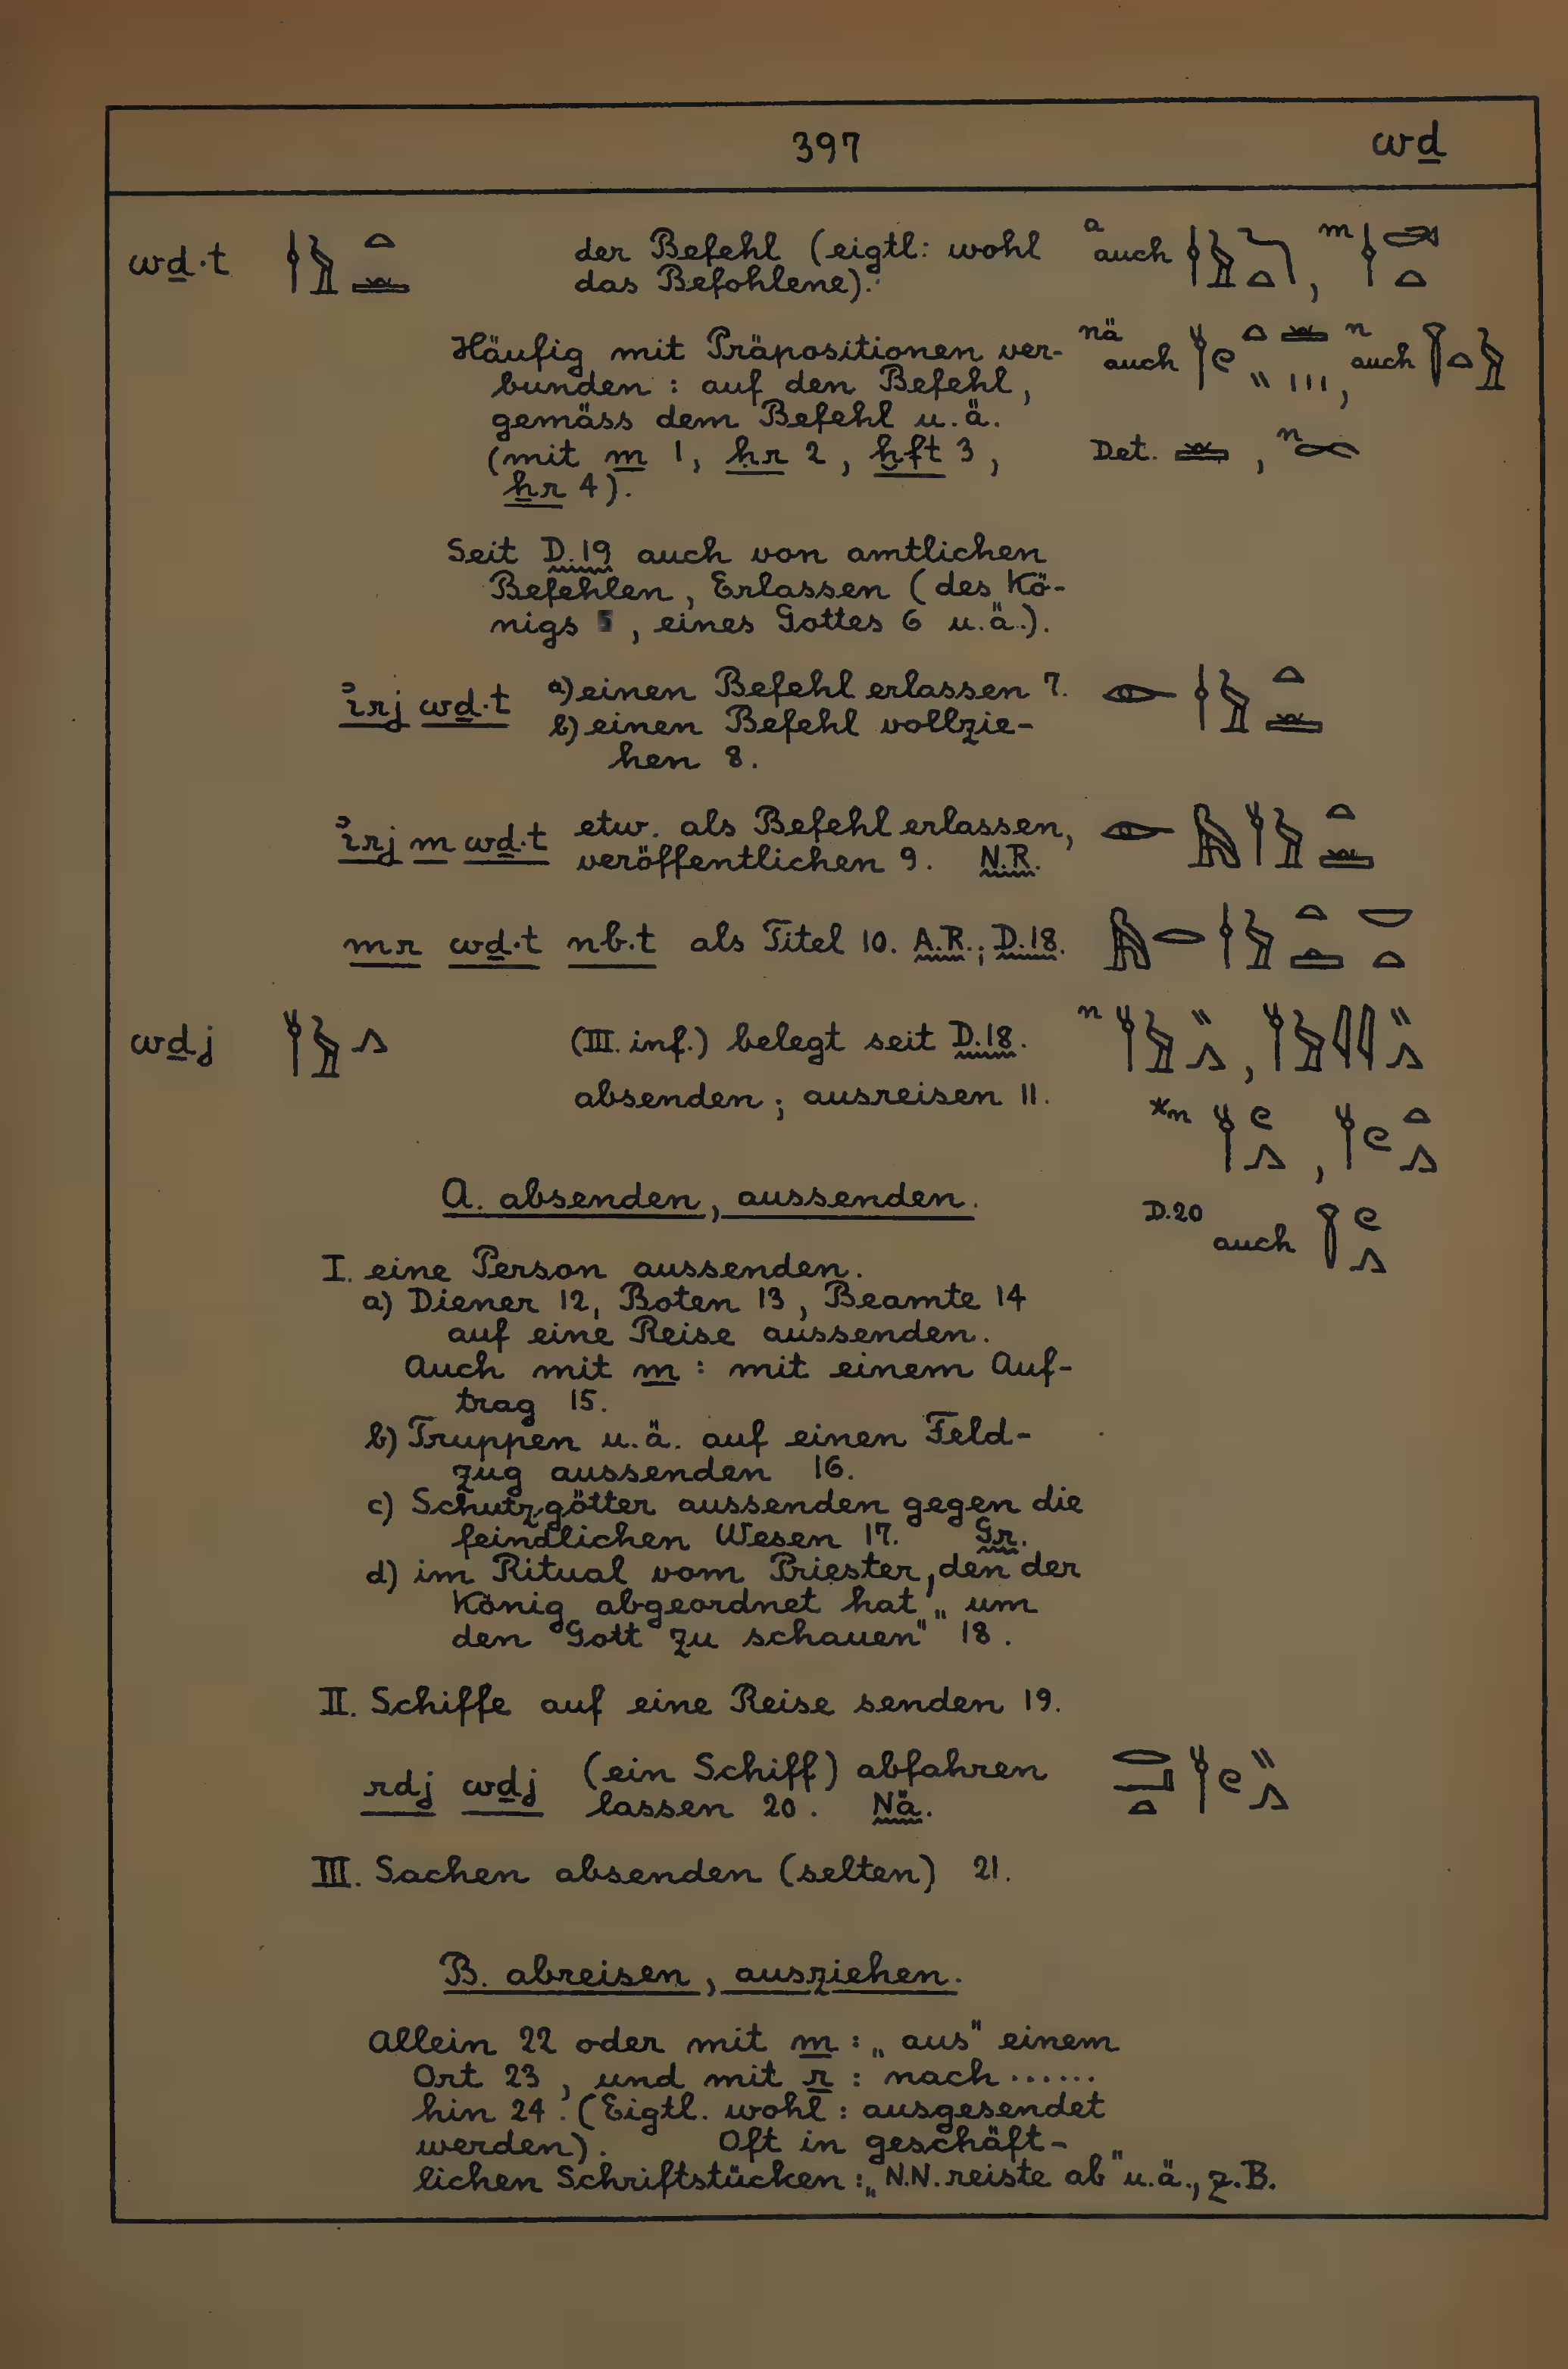 397 wḏ
wḏ·t der Befehl (eigtl: wohl a auch , m
das Befohlene).
Häufig mit Präpositionen ver- nä auch , n auch
bunden : auf den Befehl,
gemäss dem Befehl u.ä.
(mit m 1, ḥr 2, ḫft 3, Det. , n
ẖr 4).
Seit D.19 auch von amtlichen
Befehlen, Erlassen (des Kö-
nigs 5, eines Gottes 6 u.ä.).
ꞽrj wḏ·t a) einen Befehl erlassen 7.
b) einen Befehl vollzie-
hen 8.
ꞽrj m wḏ·t etw. als Befehl erlassen,
veröffentlichen 9. N.R.
mr wḏ·t nb·t als Titel 10. A.R.; D.18.
wḏj (III. inf.) belegt seit D.18. n ,
absenden; ausreisen 11. *n ,
A. absenden, aussenden.
D.20 auch
I. eine Person aussenden.
a) Diener 12, Boten 13, Beamte 14
auf eine Reise aussenden.
Auch mit m : mit einem Auf-
trag 15.
b) Truppen u.ä. auf einen Feld-
zug aussenden 16.
c) Schutzgötter aussenden gegen die
feindlichen Wesen 17. Gr.
d) im Ritual vom Priester, den der
König abgeordnet hat „um
den Gott zu schauen" 18.
II. Schiffe auf eine Reise senden 19.
rdj wḏj (ein Schiff) abfahren
lassen 20. Nä.
III. Sachen absenden (selten) 21.
B. abreisen, ausziehen.
Allein 22 oder mit m : „aus" einem
Ort 23, und mit r : nach ......
hin 24. (Eigtl. wohl : ausgesendet
werden). Oft in geschäft-
lichen Schriftstücken : „N.N. reiste ab" u.ä., z.B.